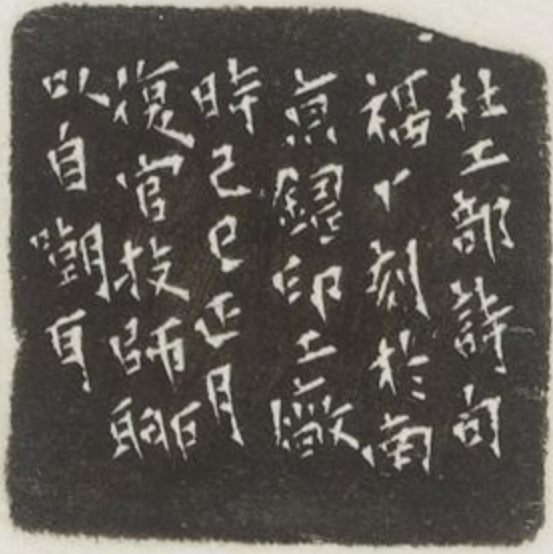 杜工部詩句
福厂刻於南
京鑄印工廠
時己巳正月
復官技師
以自嘲耳